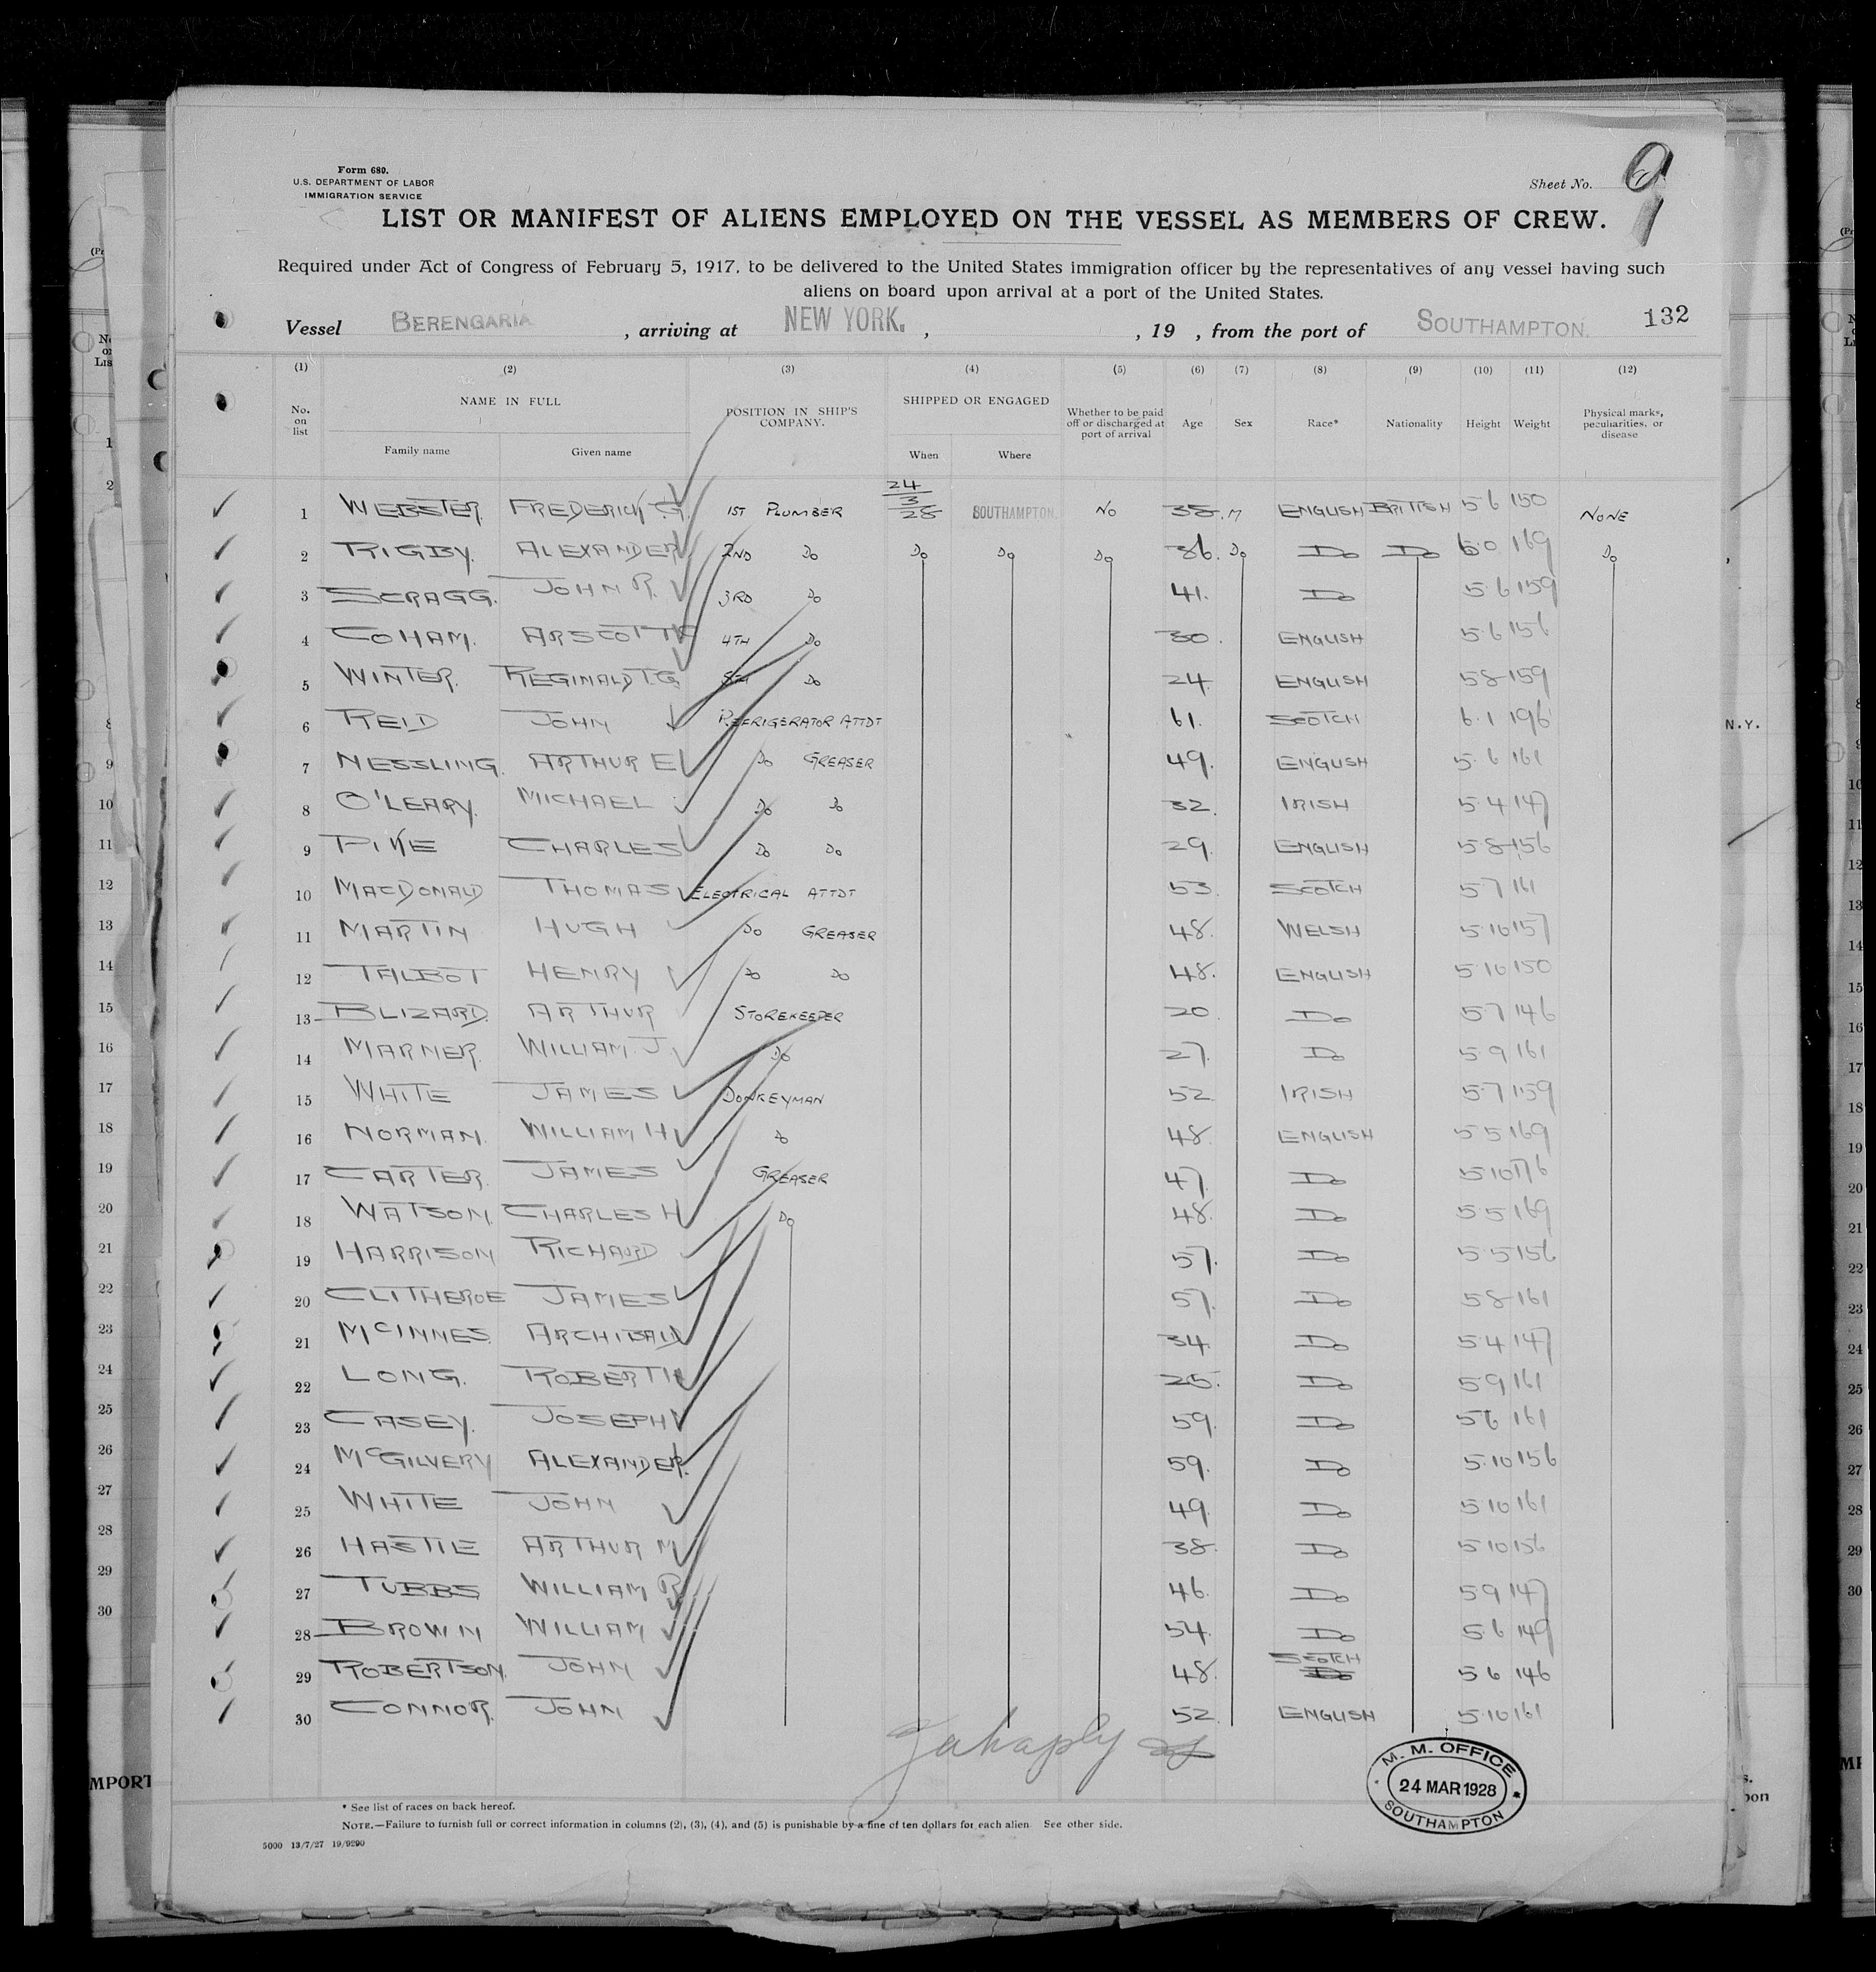 Form 680.
U.S. DEPARTMENT OF LABOR
IMMIGRATION SERVICE
Sheet No. 9
LIST OR MANIFEST OF ALIENS EMPLOYED ON THE VESSEL AS MEMBERS OF CREW.
Required under Act of Congress of February 5, 1917, to be delivered to the United States immigration officer by the representatives of any vessel having such
aliens on board upon arrival at a port of the United States.
Vessel BERENGARIA , arriving at NEW YORK. , , 19 , from the port of SOUTHAMPTON. 132
(1) (2) (3) (4) (5) (6) (7) (8) (9) (10) (11) (12)
No. on list NAME IN FULL Family name Given name POSITION IN SHIP'S COMPANY. SHIPPED OR ENGAGED When Where Whether to be paid off or discharged at port of arrival Age Sex Race* Nationality Height Weight Physical marks, peculiarities, or disease
1 WEBSTER. FREDERICK G. 1ST PLUMBER 24/3/28 SOUTHAMPTON. NO 38. M ENGLISH BRITISH 5 6 150 NONE
2 RIGBY. ALEXANDER 2ND DO DO DO DO 36. DO DO DO 6 0 169 DO
3 SCRAGG. JOHN R. 3RD DO 41. DO 5.6 159
4 COHAM. ARSCOTT 4TH DO 30. ENGLISH 5.6 156
5 WINTER. REGINALD T.G. 5TH DO 24. ENGLISH 5 8 159
6 REID JOHN REFRIGERATOR ATTDT 61. SCOTCH 6.1 196
7 NESSLING. ARTHUR E DO GREASER 49. ENGLISH 5.6 161
8 O'LEARY. MICHAEL DO DO 32. IRISH 5.4 147
9 PIKE CHARLES DO DO 29. ENGLISH 5 8 156
10 MACDONALD THOMAS ELECTRICAL ATTDT 53. SCOTCH 5 7 161
11 MARTIN HUGH DO GREASER 48. WELSH 5.10 157
12 TALBOT HENRY DO DO 48. ENGLISH 5 10 150
13 BLIZARD. ARTHUR STOREKEEPER 20 DO 5 7 146
14 MARNER. WILLIAM. J DO 27. DO 5 9 161
15 WHITE JAMES DONKEYMAN 52. IRISH 5.7 159
16 NORMAN. WILLIAM H DO 48 ENGLISH 5 5 169
17 CARTER. JAMES GREASER 47. DO 5.10 176
18 WATSON. CHARLES H DO 48. DO 5 5 169
19 HARRISON RICHARD 57. DO 5 5 156
20 CLITHEROE JAMES 57. DO 5 8 161
21 McINNES ARCHIBALD 34. DO 5 4 147
22 LONG. ROBERT H 25. DO 5 9 161
23 CASEY. JOSEPH 59. DO 5 6 161
24 McGILVERY ALEXANDER. 59. DO 5.10 156
25 WHITE JOHN 49. DO 5 10 161
26 HASTIE ARTHUR M 38. DO 5 10 156
27 TUBBS WILLIAM R 46. DO 5 9 147
28 BROWN WILLIAM 54. DO 5.6 149
29 ROBERTSON. JOHN 48. SCOTCH 5 6 146
30 CONNOR. JOHN 52. ENGLISH 5.10 161
M. M. OFFICE
24 MAR 1928
SOUTHAMPTON
* See list of races on back hereof.
NOTE.—Failure to furnish full or correct information in columns (2), (3), (4), and (5) is punishable by a fine of ten dollars for each alien. See other side.
5000 13/7/27 19/9290
N.Y.